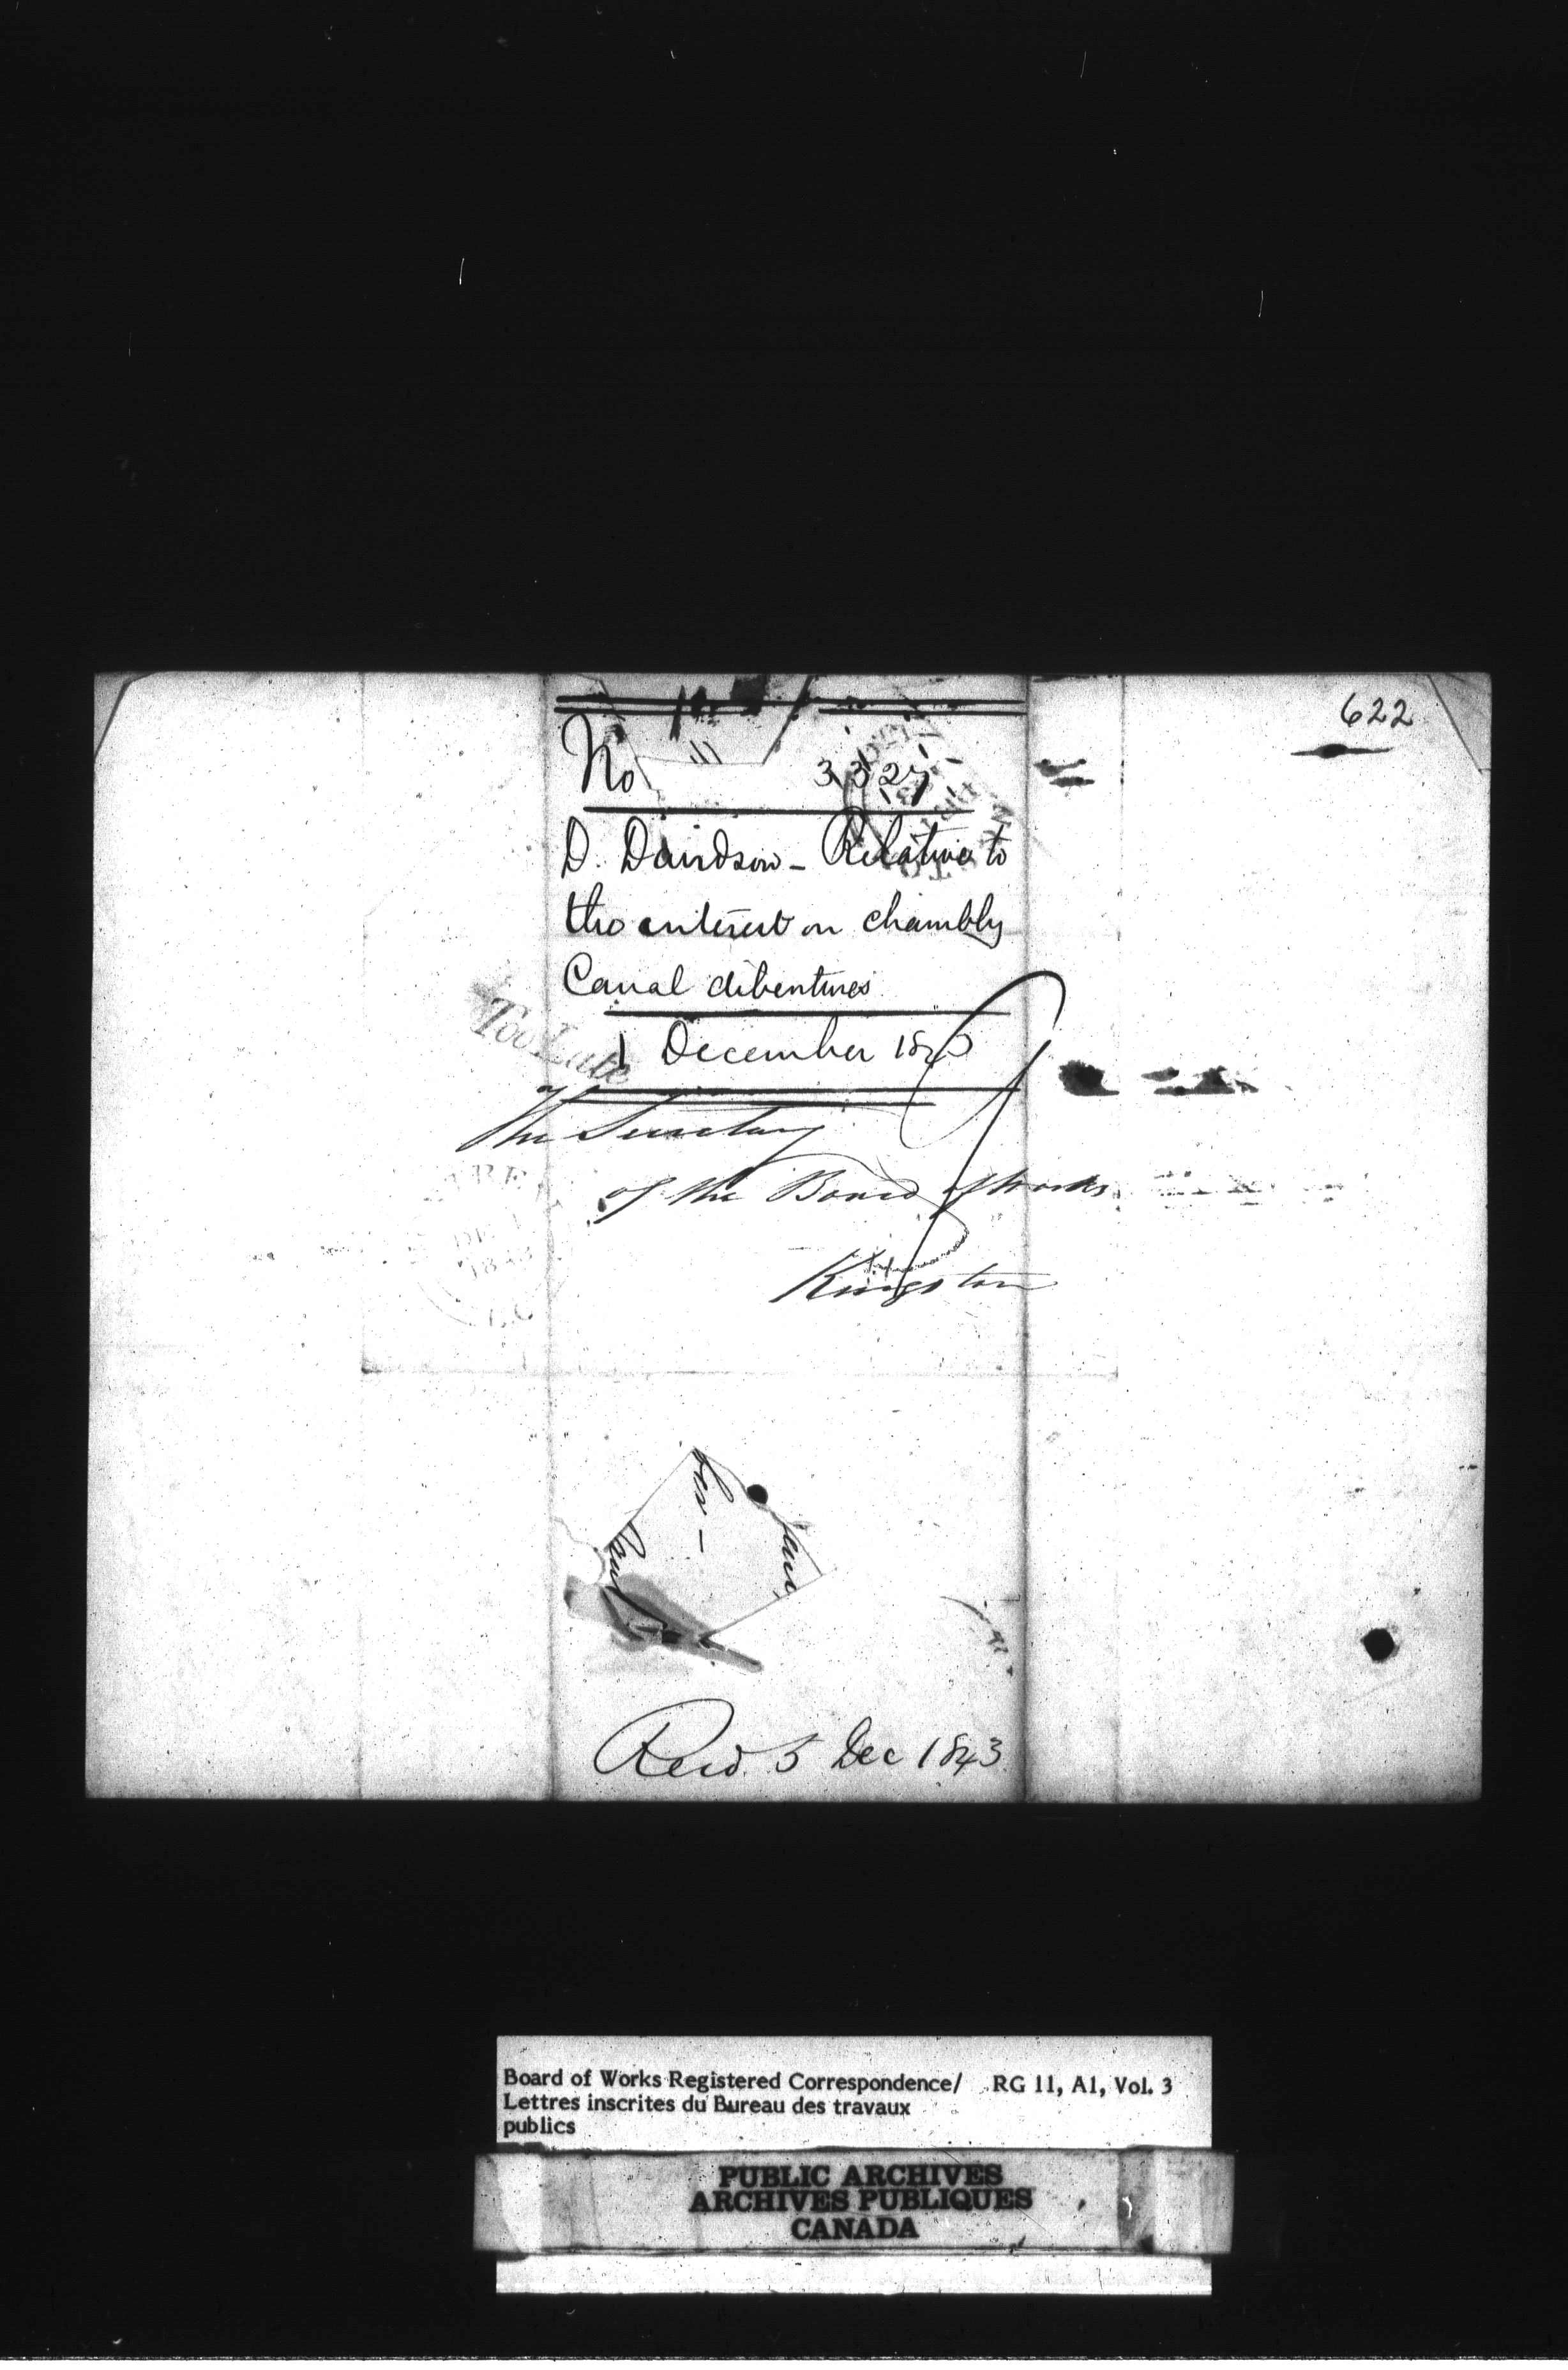 622
No 3327
D. Davidson - Relative to
the interest on chambly
Canal debentures
1 December 1843
Too Late
The Secretary
of the Board of Works
Kingston
DE 1
1843
Recd. 5 Dec 1843
Board of Works Registered Correspondence/ RG 11, A1, Vol. 3
Lettres inscrites du Bureau des travaux
publics
PUBLIC ARCHIVES
ARCHIVES PUBLIQUES
CANADA